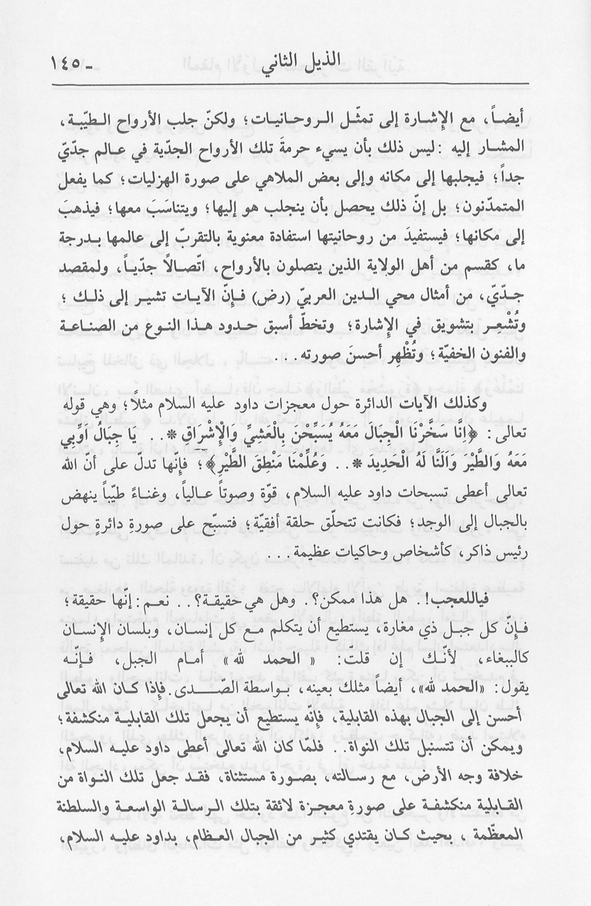 الذيل الثاني
ـ ١٤٥
أيضاً، مع الإشارة إلى تمثّل الروحانيات؛ ولكنّ جلب الأرواح الطيّبة،
المشار إليه :ليس ذلك بأن يسيء حرمةَ تلك الأرواح الجدّية في عالم جدّيّ
جداً؛ فيجلبها إلى مكانه وإلى بعض الملاهي على صورة الهزليات؛ كما يفعل
المتمدّنون؛ بل إنّ ذلك يحصل بأن ينجلب هو إليها؛ ويتناسَبَ معها؛ فيذهبَ
إلى مكانها؛ فيستفيدَ من روحانيتها استفادة معنوية بالتقربّ إلى عالمها بدرجة
ما، كقسم من أهل الولاية الذين يتصلون بالأرواح، اتّصالاً جدّياً، ولمقصد
جدّيّ، من أمثال محي الدين العربيّ (رض) فإنّ الآيات تشير إلى ذلك ؛
وتُشْعِر بتشويق في الإشارة؛ وتخطّ أسبق حدود هذا النوع من الصناعة
والفنون الخفيّة؛ وتُظْهِر أحسنَ صورته...
وكذلك الآيات الدائرة حول معجزات داود عليه السلام مثلاً؛ وهي قوله
تعالى: ﴿إِنَّا سَخَّرْنَا الْجِبَالَ مَعَهُ يُسَبِّحْنَ بِالْعَشِيِّ وَالْإِشْرَاقِ *.. يَا جِبَالُ أَوِّبِي
مَعَهُ وَالطَّيْرَ وَأَلَنَّا لَهُ الْحَدِيدَ *.. وَعُلِّمْنَا مَنْطِقَ الطَّيْرِ﴾؛ فإنّها تدلّ على أنّ الله
تعالى أعطى تسبحات داود عليه السلام، قوّة وصوتاً عالياً، وغناءً طيّباً ينهض
بالجبال إلى الوجد؛ فكانت تتحلّق حلقة أفقيّة؛ فتسبّح على صورةِ دائرةٍ حول
رئيس ذاكر، كأشخاص وحاكيات عظيمة...
فياللعجب!. هل هذا ممكن؟. وهل هي حقيقة؟.. نعم: إنّها حقيقة؛
فإنّ كل جبل ذي مغارة، يستطيع أن يتكلم مع كل إنسان، وبلسان الإنسان
كالببغاء، لأنّك إن قلتَ: « الحمد لله» أمام الجبل، فإنّه
يقول: «الحمد لله»، أيضاً مثلك بعينه، بواسطة الصَّدى. فإذا كان الله تعالى
أحسن إلى الجبال بهذه القابلية، فإنّه يستطيع أن يجعل تلك القابلية منكشفة؛
ويمكن أن تتسنبل تلك النواة.. فلمّا كان الله تعالى أعطى داود عليه السلام،
خلافة وجه الأرض، مع رسالته، بصورة مستثناة، فقد جعل تلك النواة من
القابلية منكشفة على صورةِ معجزة لائقة بتلك الرسالة الواسعة والسلطنة
المعظّمة ، بحيث كان يقتدي كثير من الجبال العظام، بداود عليه السلام،